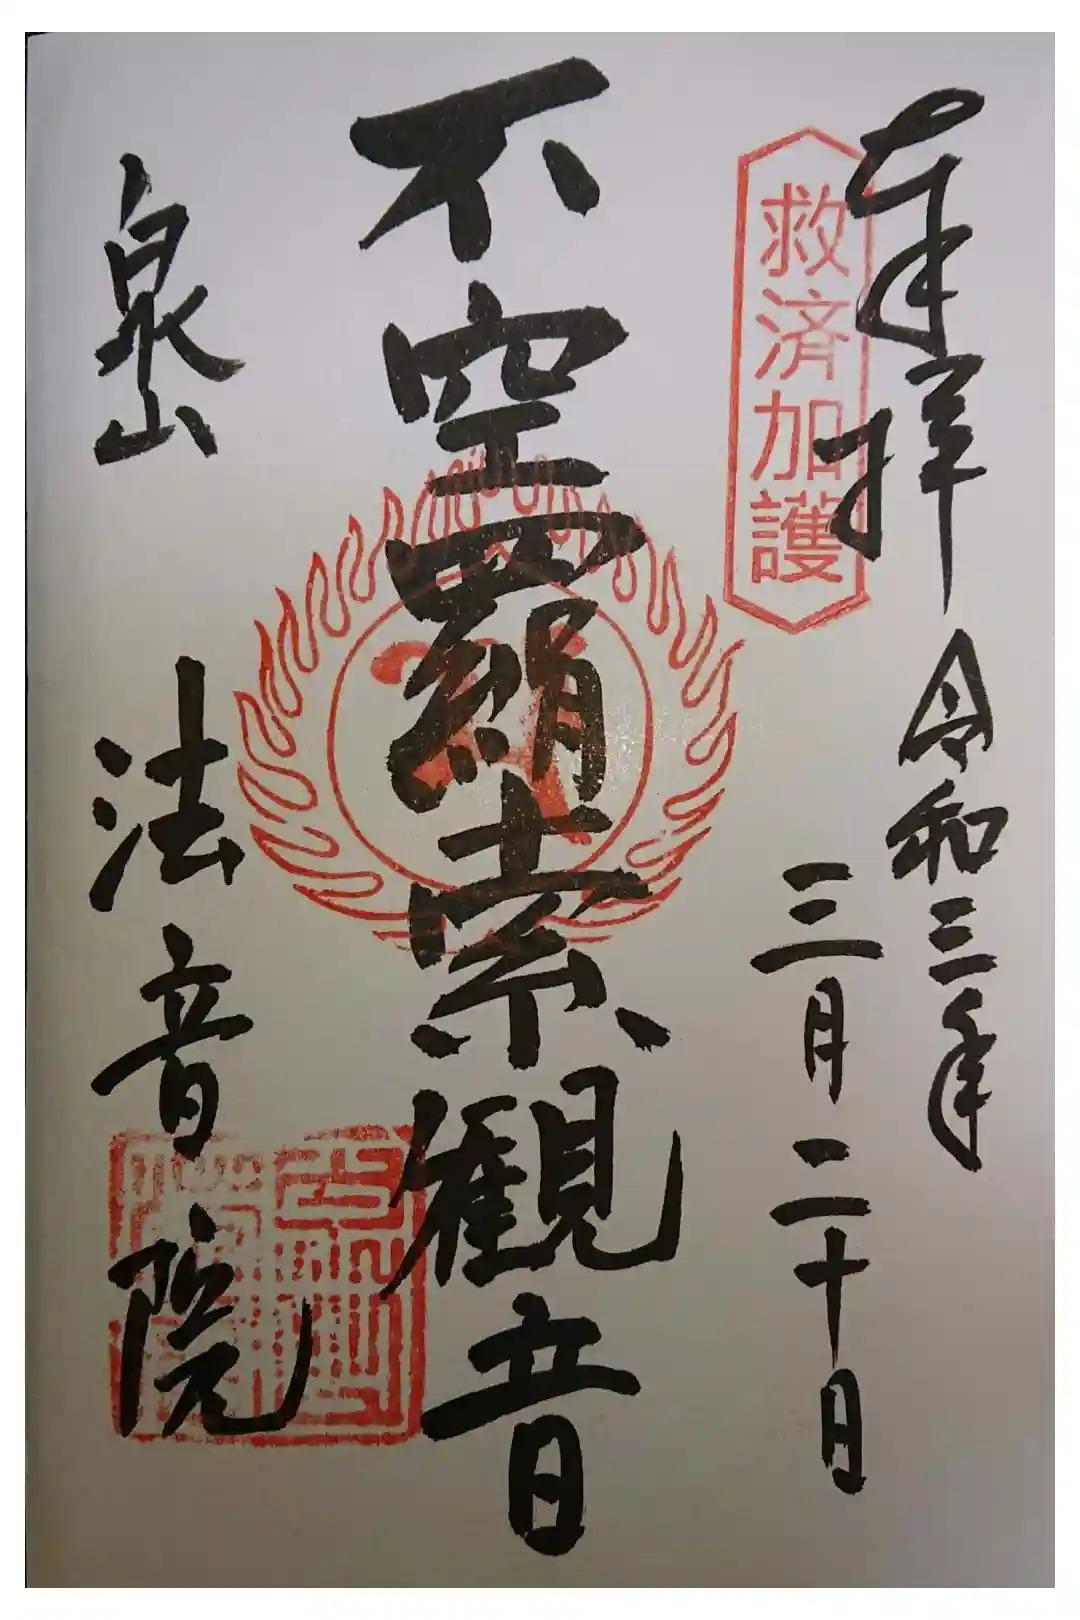 奉拝
救済加護
令和三年
三月二十日
不空羂索観音
泉山
法音院